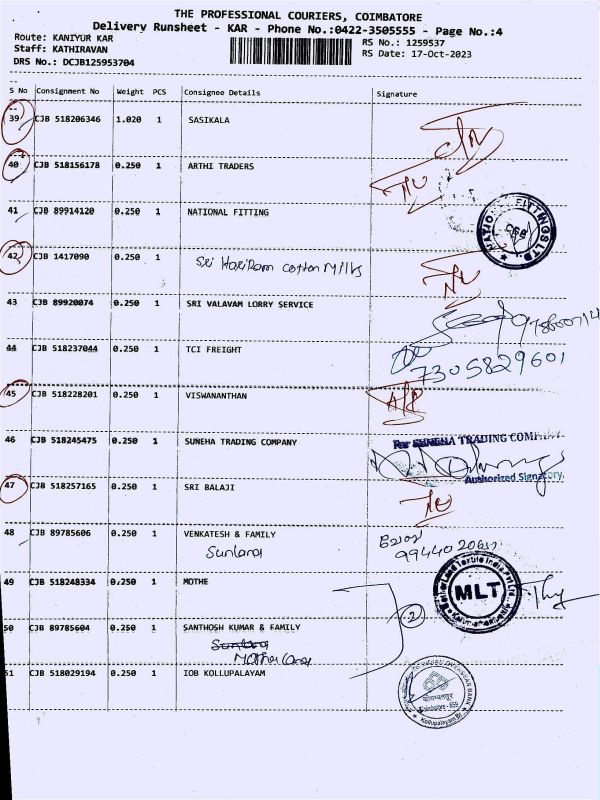 THE PROFESSIONAL COURIERS, COIMBATORE
Delivery Runsheet - KAR - Phone No.:0422-3505555 - Page No.:4
Route: KANIYUR KAR
RS No.: 1259537
Staff: KATHIRAVAN
RS Date: 17-Oct-2023
DRS No.: DCJB125953704
S No Consignment No Weight PCS Consignee Details Signature
39 CJB 518206346 1.020 1 SASIKALA
40 CJB 518156178 0.250 1 ARTHI TRADERS
41 CJB 89914120 0.250 1 NATIONAL FITTING
NATIONAL FITTINGS LTD.
42 CJB 1417090 0.250 1 Sri Hariram cotton Mills
43 CJB 89920074 0.250 1 SRI VALAVAM LORRY SERVICE
44 CJB 518237044 0.250 1 TCI FREIGHT
7305829601
45 CJB 518228201 0.250 1 VISWANANTHAN
46 CJB 518245475 0.250 1 SUNEHA TRADING COMPANY
For SUNEHA TRADING COMPANY
Authorized Signatory
47 CJB 518257165 0.250 1 SRI BALAJI
48 CJB 89785606 0.250 1 VENKATESH & FAMILY
49 CJB 518248334 0.250 1 MOTHE
MLT
2
50 CJB 89785604 0.250 1 SANTHOSH KUMAR & FAMILY
51 CJB 518029194 0.250 1 IOB KOLLUPALAYAM